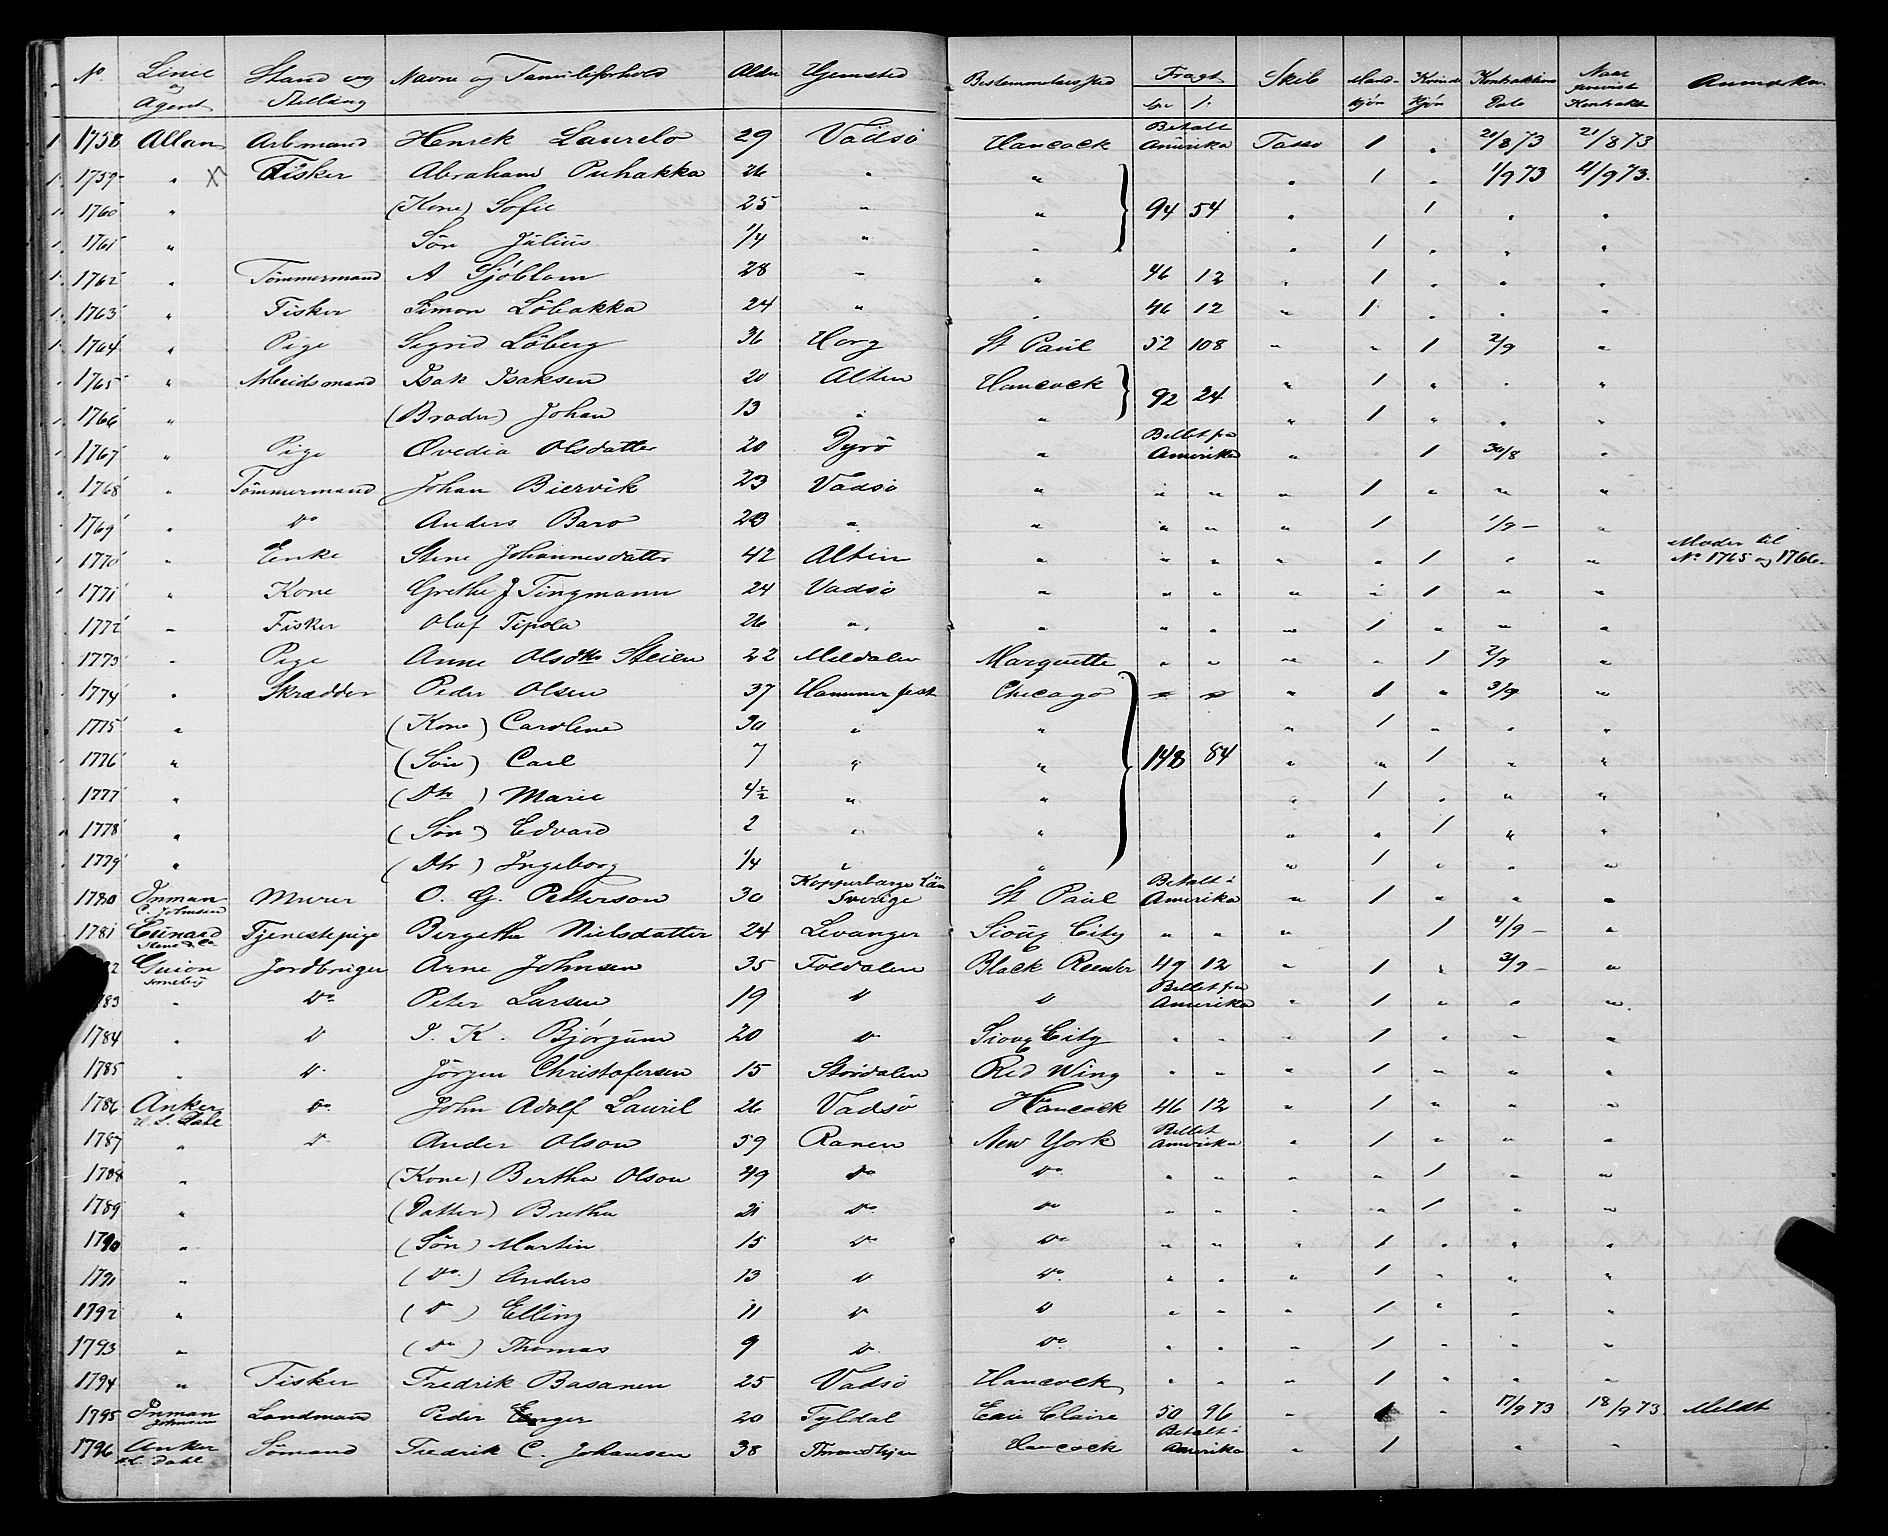 No Linie og Agent Stand og Stilling Navne og Familieforhold Alder Hjemsted Bestemmelsessted Fragt Spd ſ. Skib Mandkjøn Kvindekjøn Kontraktens Dato Naar forevist Kontrakt Anmærkn.
1758 Allan Arbmand Henrek Laurelo 29 Vadsö Hancock Betalt Amerika Tasso 1 " 21/8 73 21/8 73
1759 " X Fisker Abraham Puhakka 26 " " " 1 " 1/9 73 4/9 73.
1760 " (Kone) Sofie 25 " " 94 54 " 1 " "
1761 " Sön Julius 1/4 " " " 1 " " "
1762 " Tömmermand A Sjöblom 28 " " 46 12 " 1 " " "
1763 " Fisker Simon Löbakka 24 " " 46 12 " 1 " " "
1764 " Pige Sigrid Löberg 36 Horg St Paul 52 108 " " 1 2/9 "
1765 " Arbeidsmand Isak Isaksen 20 Alten Hancock 92 24 " 1 " " "
1766 " (Broder) Johan 13 " " " 1 " " "
1767 " Pige Ovedia Olsdatter 20 Dyrö " Billet fra Amerika " 1 30/8 "
1768 " Tömmermand Johan Biervik 23 Vadsö " " " " 1 " " "
1769 " Do Anders Baro 23 " " " " " 1 1/9 - "
1770 " Enke Stine Johannesdatter 42 Alten " " " " " 1 " " Moder til No 1765 og 1766.
1771 " Kone Grethe J Tingmann 24 Vadsö " " " " " 1 " "
1772 " Fisker Olaf Tipola 26 " " " " " 1 " " "
1773 " Pige Anne Olsdtr Steien 22 Meldalen Marquette " " " " 1 2/9 "
1774 " Skrædder Peder Olsen 37 Hammerfest Chicago " " " 1 " 3/9 "
1775 " (Kone) Caroline 30 " " " 1 " " "
1776 " (Sön) Carl 7 " " 148 84 " " 1 " "
1777 " (Dtr) Marie 4½ " " " 1 " " "
1778 " (Sön) Edvard 2 " " " " 1 " "
1779 " (Dtr) Ingeborg 1/4 " " " 1 " " "
1780 Inman C. Johnsen Murer O. G. Petterson 30 Kopperbergs Län Sverige St Paul Betalt i Amerika " 1 " " "
1781 Cunard Tjenestepige Bergetha Nielsdatter 24 Levanger Sioux City " " " 1 4/9 - "
Guion Jordbruger Arne Johnsen 35 Foldalen Black 49 12 " 1 " 3/9 - "
1783 " Do Peter Larsen 19 D D Billet fra Amerika " 1 " " "
1784 " D P. K. Bjórgum 20 D Sioux City " " " 1 " "
1785 " D Jörgen Christofersen 15 Stördalen Red Wing " " " 1 " " "
1786 Anker Dahl Do John Adolf Lauril 26 Vadsö Hancock 46 12 " 1 " " "
1787 " D Ander Olson 59 Ranen New York Billet Amerika " 1 " " "
1788 " (Kone) Bertha Olson 49 Do Do " " " " 1 " "
1789 " (Datter) Bretha 21 Do Do " " " " 1 " "
1790 " (Sön) Martin 15 Do Do " " " 1 " " "
1791 " (Do) Anders 13 D Do " " " 1 " " "
1792 " (D) Elling 11 D D " " " 1 " " "
1793 " (Do) Thomas 9 D Do " " " 1 " " "
1794 " Fisker Fredrik Basanen 25 Vadsö Hancock " " " 1 " " "
1795 Inman Johnsen Landmand Peder Enger 20 Tyldal Eau Claire 50 96 " 1 " 17/9 73 18/9 73 Meldt
1796 Anker Dahl Sömand Fredrik C. Johansen 38 Trondhjem Hancock Betalt i Amerika " 1 " "